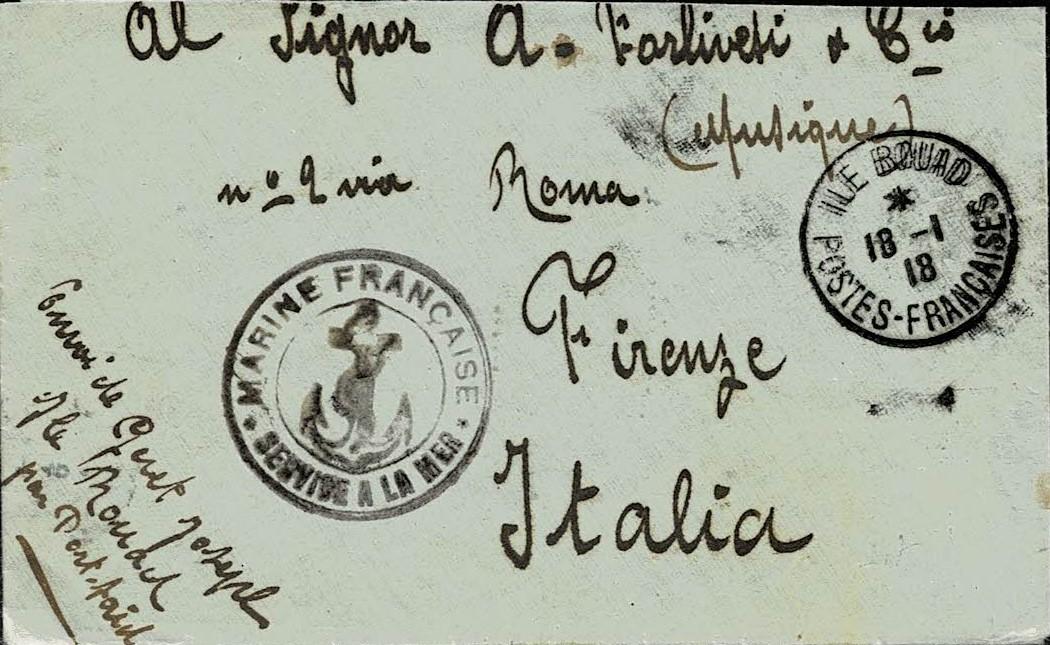 Al Signor A. Forlivesi & Cie
(Musique)
nº 2 via Roma
Firenze
Italia
ILE ROUAD
*
18 -1
18
POSTES-FRANÇAISES
MARINE FRANÇAISE
* SERVICE A LA MER *
Envoi de Joseph
Ile Rouad
par Port-Said